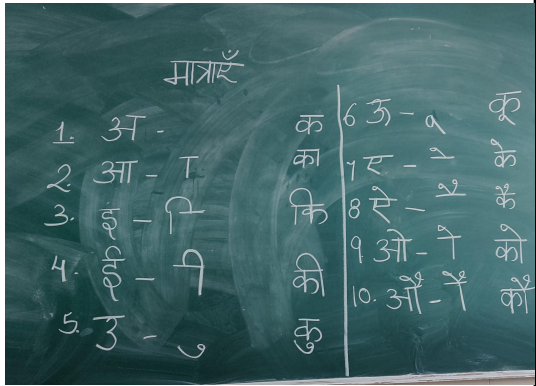 मात्राएँ
1. अ - क
2 आ - ा का
3. इ - ि कि
4. ई - ी की
5. उ - ु कु
6 ऊ - ू कू
7 ए - े के
8 ऐ - ै कै
9 ओ - ो को
10. औ - ौ कौ